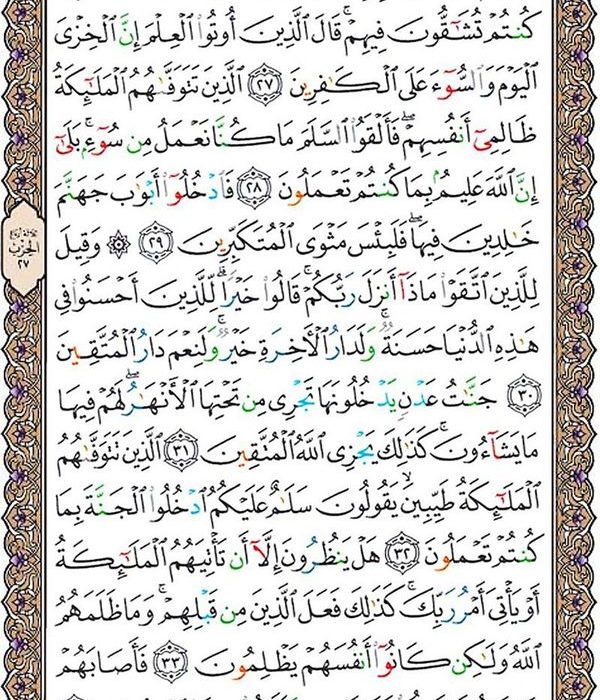 كُنتُمْ تُشَـٰٓقُّونَ فِيهِمْ ۚ قَالَ ٱلَّذِينَ أُوتُوا۟ ٱلْعِلْمَ إِنَّ ٱلْخِزْىَ
ٱلْيَوْمَ وَٱلسُّوٓءَ عَلَى ٱلْكَـٰفِرِينَ ٢٧ ٱلَّذِينَ تَتَوَفَّىٰهُمُ ٱلْمَلَـٰٓئِكَةُ
ظَالِمِىٓ أَنفُسِهِمْ ۖ فَأَلْقَوُا۟ ٱلسَّلَمَ مَا كُنَّا نَعْمَلُ مِن سُوٓءٍۭ ۚ بَلَىٰٓ
إِنَّ ٱللَّهَ عَلِيمٌۢ بِمَا كُنتُمْ تَعْمَلُونَ ٢٨ فَٱدْخُلُوٓا۟ أَبْوَٰبَ جَهَنَّمَ
خَـٰلِدِينَ فِيهَا ۖ فَلَبِئْسَ مَثْوَى ٱلْمُتَكَبِّرِينَ ٢٩ ۞ وَقِيلَ
الحزب ٢٧
لِلَّذِينَ ٱتَّقَوْا۟ مَاذَآ أَنزَلَ رَبُّكُمْ ۚ قَالُوا۟ خَيْرًا ۗ لِّلَّذِينَ أَحْسَنُوا۟ فِى
هَـٰذِهِ ٱلدُّنْيَا حَسَنَةٌ ۚ وَلَدَارُ ٱلْـَٔاخِرَةِ خَيْرٌ ۚ وَلَنِعْمَ دَارُ ٱلْمُتَّقِينَ
٣٠ جَنَّـٰتُ عَدْنٍ يَدْخُلُونَهَا تَجْرِى مِن تَحْتِهَا ٱلْأَنْهَـٰرُ ۖ لَهُمْ فِيهَا
مَا يَشَآءُونَ ۚ كَذَٰلِكَ يَجْزِى ٱللَّهُ ٱلْمُتَّقِينَ ٣١ ٱلَّذِينَ تَتَوَفَّىٰهُمُ
ٱلْمَلَـٰٓئِكَةُ طَيِّبِينَ ۙ يَقُولُونَ سَلَـٰمٌ عَلَيْكُمُ ٱدْخُلُوا۟ ٱلْجَنَّةَ بِمَا
كُنتُمْ تَعْمَلُونَ ٣٢ هَلْ يَنظُرُونَ إِلَّآ أَن تَأْتِيَهُمُ ٱلْمَلَـٰٓئِكَةُ
أَوْ يَأْتِىَ أَمْرُ رَبِّكَ ۚ كَذَٰلِكَ فَعَلَ ٱلَّذِينَ مِن قَبْلِهِمْ ۚ وَمَا ظَلَمَهُمُ
ٱللَّهُ وَلَـٰكِن كَانُوٓا۟ أَنفُسَهُمْ يَظْلِمُونَ ٣٣ فَأَصَابَهُمْ